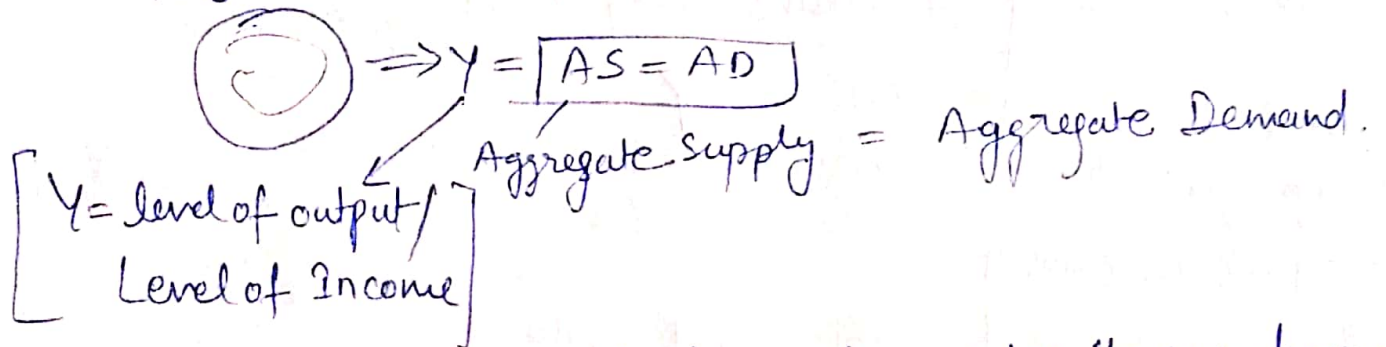 ⇒ Y = AS = AD
Aggregate Supply = Aggregate Demand.
Y = level of output/
Level of Income